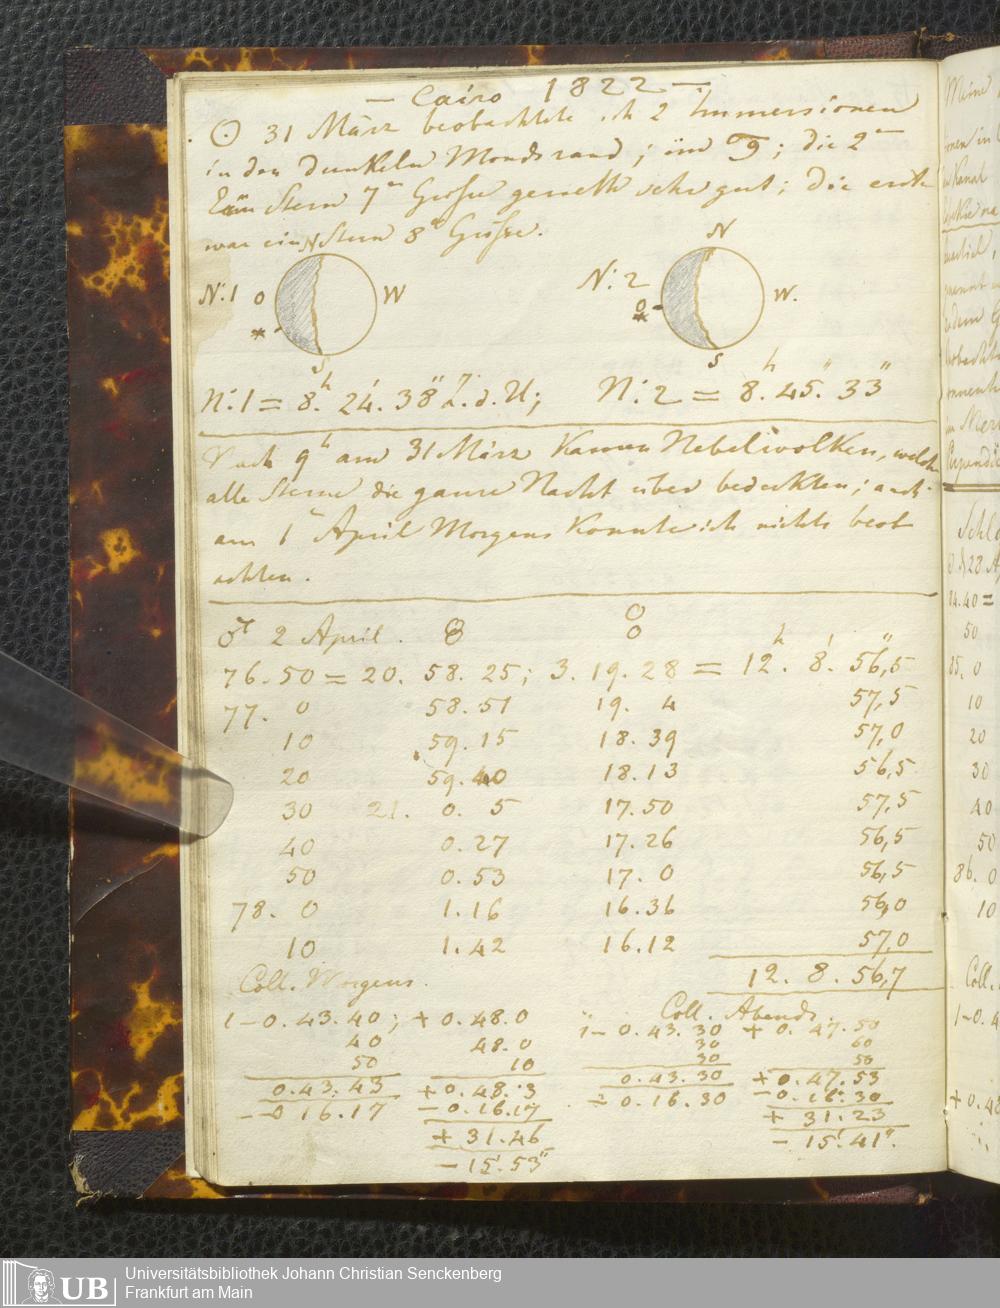 — Cairo 1822 —
☉ 31 März beobachtete ich 2 Immersionen
in den dunkeln Mondsrand; im ♋; die 2te
Stern 7n Größe geriethe sehr gut; die erste
war ein Stern 8r Größe.
N N
N:1 O W N:2 O W.
S S
N:1 = 8h. 24'. 38" Z.d.U; N:2 = 8h. 45'. 33"
Nach 9h am 31 März kamen Nebelwolken, welche
alle Sterne die ganze Nacht über bedeckten; auch
am 1n April Morgens konnte ich nichts beob
achten.
♂ 2 April.
76. 50 = 20. 58. 25; 3. 19. 28 = 12h. 8'. 56",5
77. 0 58. 51 19. 4 57,5
10 59. 15 18. 39 57,0
20 59. 40 18. 13 56,5
30 21. 0. 5 17. 50 57,5
40 0. 27 17. 26 56,5
50 0. 53 17. 0 56,5
78. 0 1. 16 16. 36 56,0
10 1. 42 16. 12 57,0
12. 8. 56,7
Coll. Morgens.
1 – 0. 43. 40; + 0. 48. 0
40 48. 0
50 10
0. 43. 43 + 0. 48. 3
– 0 16. 17 – 0. 16. 17
+ 31. 46
– 15'. 53"
Coll. Abends.
1 – 0. 43. 30 + 0. 47. 50
30 60
30 50
0. 43. 30 + 0. 47. 53
– 0. 16. 30 – 0. 16. 30
+ 31. 23
– 15'. 41".
Meine
Kanal
Schl
28 A
84. 40 =
50
85. 0
10
20
30
40
50
86. 0
10
Coll.
1 – 0. 4
+ 0. 4
UB
Universitätsbibliothek Johann Christian Senckenberg
Frankfurt am Main